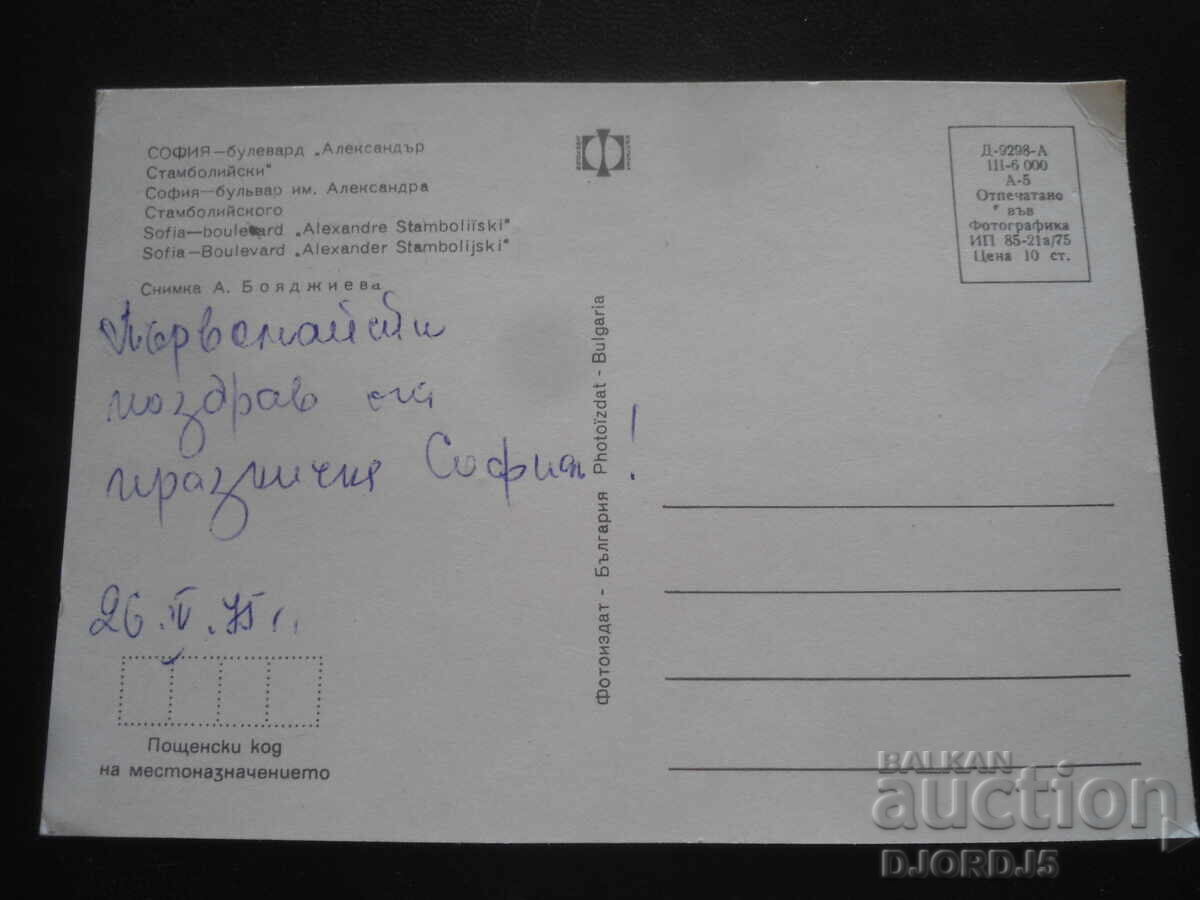 СОФИЯ—булевард „Александър
Стамболийски"
София—бульвар им. Александра
Стамболийского
Sofia—boulevard „Alexandre Stamboliïski"
Sofia—Boulevard „Alexander Stambolijski"
Снимка А. Бояджиева
Първомайски
поздрав от
празнична София!
26.IV.75 г.
Пощенски код
на местоназначението
Фотоиздат - България Photoïzdat - Bulgaria
Д-9298-А
III-6 000
А-5
Отпечатано
във
Фотографика
ИП 85-21а/75
Цена 10 ст.
BALKAN
auction
DJORDJ5